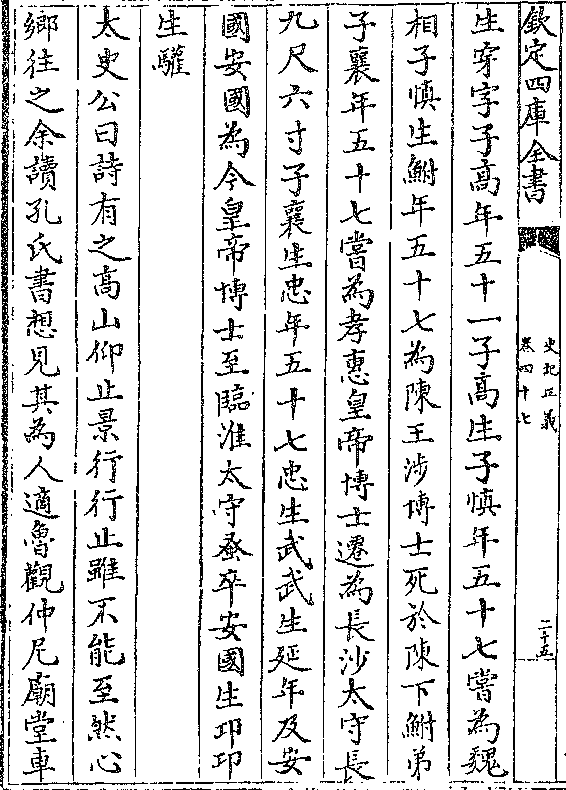 欽定四庫全書
史記正義
卷四十七
二十五
生穿字子髙年五十一子髙生子慎年五十七嘗為魏
相子慎生鮒年五十七為陳王涉博士死於陳下鮒弟
子襄年五十七嘗為孝惠皇帝博士遷為長沙太守長
九尺六寸子襄生忠年五十七忠生武武生延年及安
國安國為今皇帝博士至臨淮太守蚤卒安國生卭卭
生驩
太史公曰詩有之髙山仰止景行行止雖不能至然心
鄉往之余讀孔氏書想見其為人適魯觀仲尼廟堂車